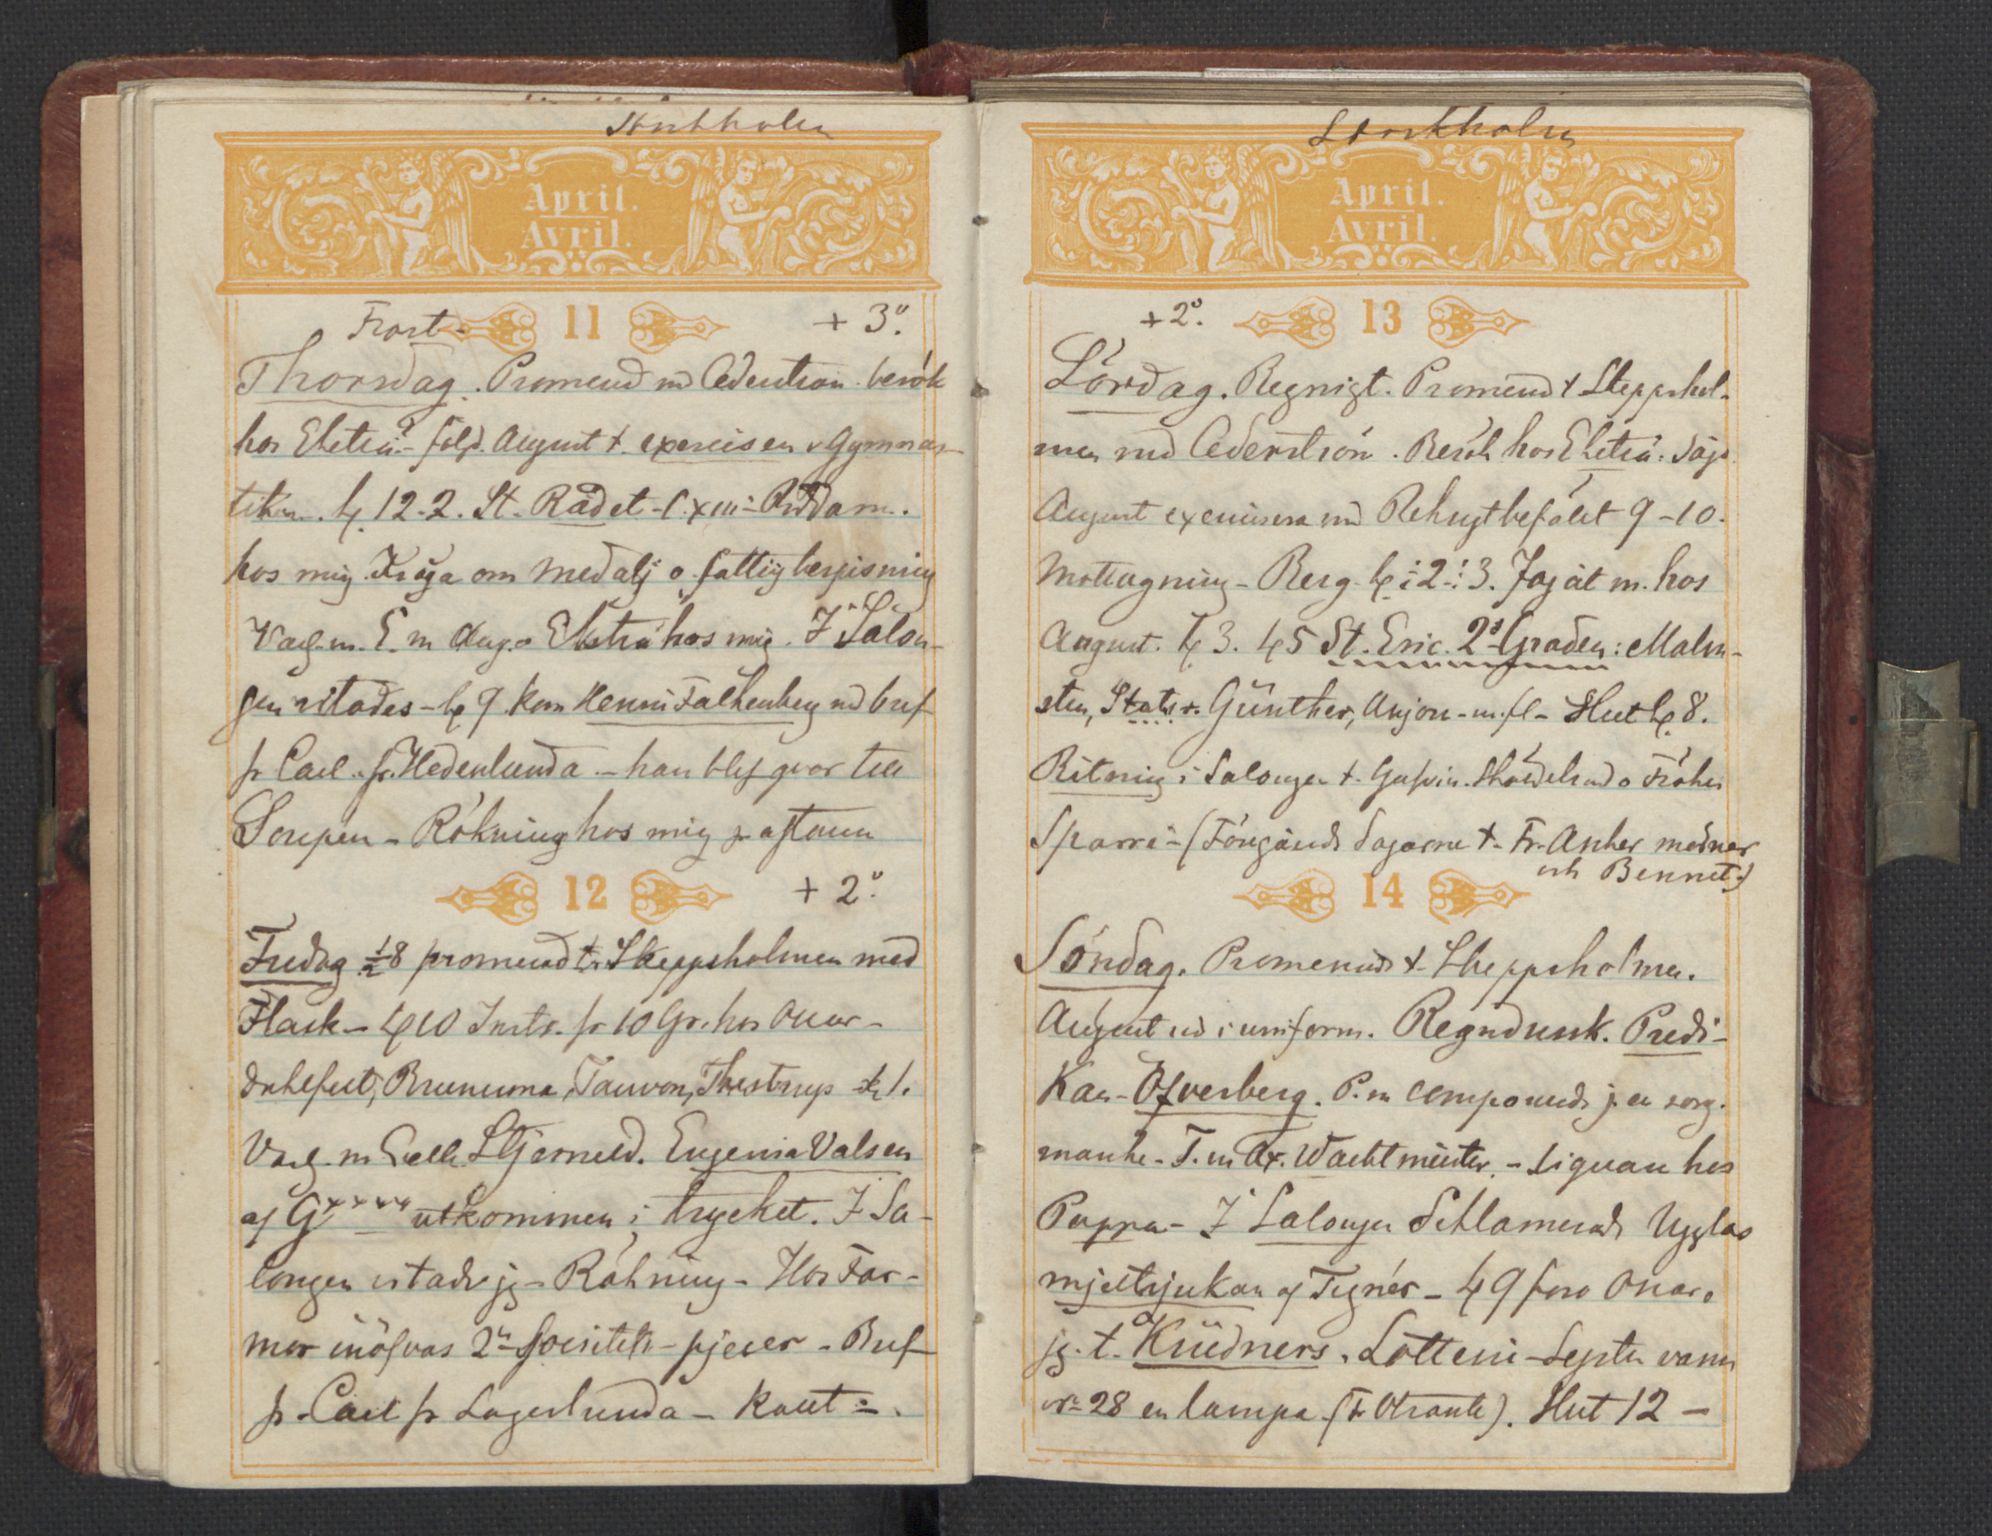 Stockholm
April.
Avril.
Frost - 11 + 3°.
Thorsdag. Promenad md Cederström. besök
hos Eketrä - följd. August t. exercisen o Gymnas-
tiken. kl. 12-2. St. Rådet - C. XIII - Riddarn.
hos mig. Fråga om medalj o. fattigbespisning
Vagn. m. E. m Aug. o Eketrä hos mig. I Salon-
gen ritades - kl 9 kom Henni Falkenberg md bref
fr Carl. fr. Hedenlunda - han blef qvar till
Soupen - Rökning hos mig p aftonen
12 + 2°.
Fredag ½8 promenad t. Skeppsholmen med
Flach - kl 10 Instr. fr 10 Gr. hos Oscar -
Dahlqvist, Bruniuma, Tauvon, Thestrup kl 1.
Vagn m Gelle Stjerneld. Eugenia Valsen
af G**** utkommen i trycket. I Sa-
longen ritade jg - Rökning - Hos Far-
mor inöfvas 2ne Societets-pjeser - Bref
fr. Carl fr Lagerlunda - Kallt -.
Stockholm
April.
Avril.
+ 2°. 13
Lördag. Regnigt. Promenad t Skeppshol-
men md Cederström. Besök hos Eketrä: såg
August exercisera md Rekrytbefälet 9-10.
Mottagning - Berg. kl. ½2-½3. Jag åt m. hos
August. kl 3. 45 St. Eric. 2a Graden: Malm-
sten, Statsr. Günther, Anjou - m. fl - Slut kl 8.
Ritning i Salongen t. Grefvin. Sköldebrand o Fröken
Sparre - (Föregående dagarne t. Fr. Ankar medner
och Bennet.)
14
Söndag. Promenad t. Skeppsholmen.
August ed i uniform. Regndusk. Predi-
kan - Öfverberg. P. m componerade j. en sorg-
marche - T. m Ax. Wachtmeister - Siguan hos
Pappa - I Salongen deklamerade Ugglas
mjeltsjukan af Tegnér - kl 9 foro Oscar o
jg. t. Krüdners. Lotteri - Septer vann
nr 28 en lampa (t Utrante). Slut 12 -